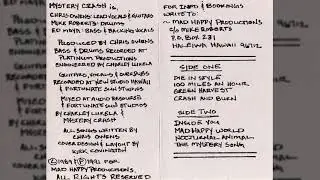 MYSTERY CRASH is,
CHRIS OWENS: LEAD VOCALS/GUITARS
MIKE ROBERTS: DRUMS
ED MAYA: BASS & BACKING VOCALS
PRODUCED BY CHRIS OWENS
BASS & DRUMS RECORDED AT
PLATINUM PRODUCTIONS
ENGINEERED BY CHARLEY LIKELA
GUITARS, VOCALS & OVERDUBS
RECORDED AT NEW STUDIO HAWAII
& FORTUNATE SUN STUDIOS
MIXED AT AUDIO RESOURCE
& FORTUNATE SUN STUDIOS
BY CHARLEY LIKELA &
MYSTERY CRASH
ALL SONGS WRITTEN BY
CHRIS OWENS
COVER DESIGN & LAYOUT BY
KIRK COVINGTON
MAD HAPPY
PRODUCTIONS,
ALL RIGHTS RESERVED
FOR INFO & BOOKINGS
WRITE TO:
MAD HAPPY PRODUCTIONS
C/O MIKE ROBERTS
P.O. BOX 231
HALEIWA HAWAII 96712
SIDE ONE
DIE IN STYLE
100 MILES AN HOUR
GREEN HARVEST
CRASH AND BURN
SIDE TWO
INSIDE YOU
MAD HAPPY WORLD
NOCTURNAL ANIMAL
THE MYSTERY SONG